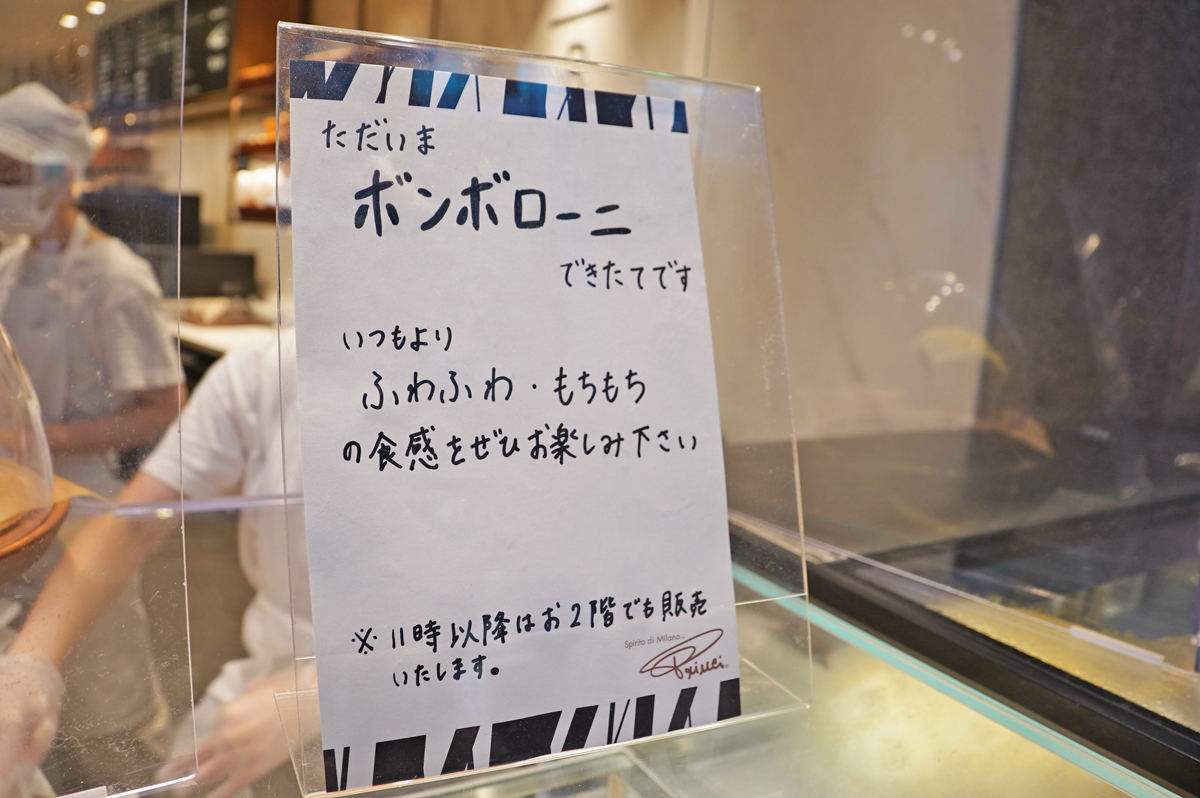 ただいま
ボンボローニ
できたてです
いつもより
ふわふわ・もちもち
の食感をぜひお楽しみ下さい
※11時以降はお2階でも販売
いたします。
Spirito di Milano
Princi